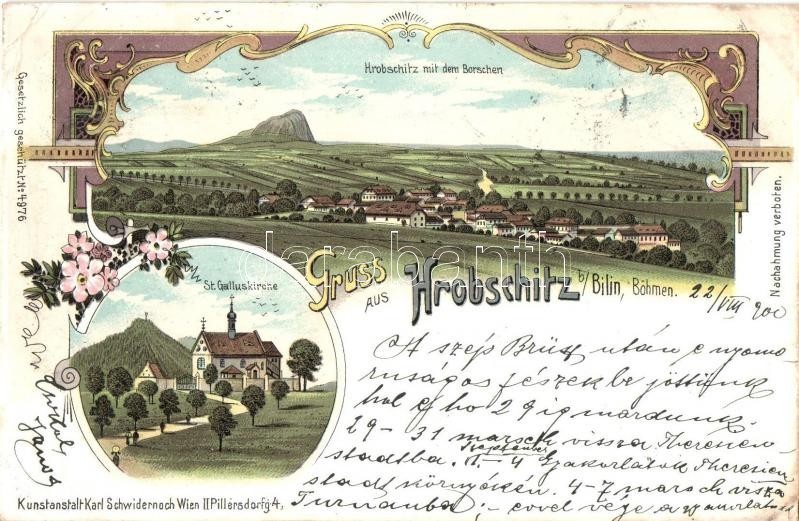 Hrobschitz mit dem Borschen
Gesetzlich geschützt No 4976
Nachahmung verboten.
St. Galluskirche
Gruss
aus
Hrobschitz
b/ Bilin, Böhmen.
22/VIII 900
A szép Brüx után e nyomo-
ruságos fészekbe jöttünk
hol e hó 29 ig maradunk.
29-31 marsch vissza Theresien-
stadtba. September
1-4 Gyakorlatok Theresien
stadt környékén. 4-7 marsch vissza
Turnauba; - ezzel vége a gyakorlatnak
János
Kunstanstalt Karl Schwidernoch Wien II Pillersdorfg 4,
darabanth